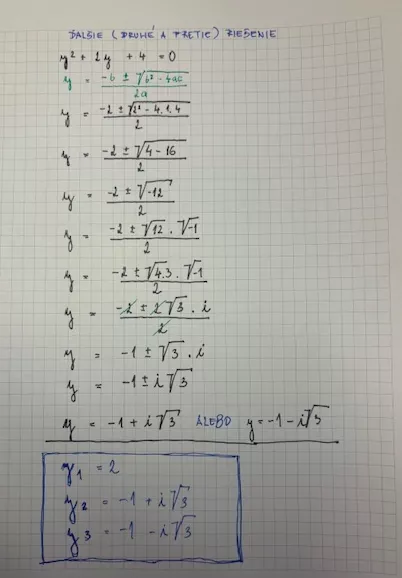 ĎALŠIE (DRUHÉ A TRETIE) RIEŠENIE
y² + 2y + 4 = 0
y = (-b ± √(b² - 4ac)) / 2a
y = (-2 ± √(2² - 4.1.4)) / 2
y = (-2 ± √(4 - 16)) / 2
y = (-2 ± √(-12)) / 2
y = (-2 ± √12 . √-1) / 2
y = (-2 ± √(4.3) . √-1) / 2
y = (-2 ± 2√3 . i) / 2
y = -1 ± √3 . i
y = -1 ± i√3
y = -1 + i√3 ALEBO y = -1 - i√3
y₁ = 2
y₂ = -1 + i√3
y₃ = -1 - i√3